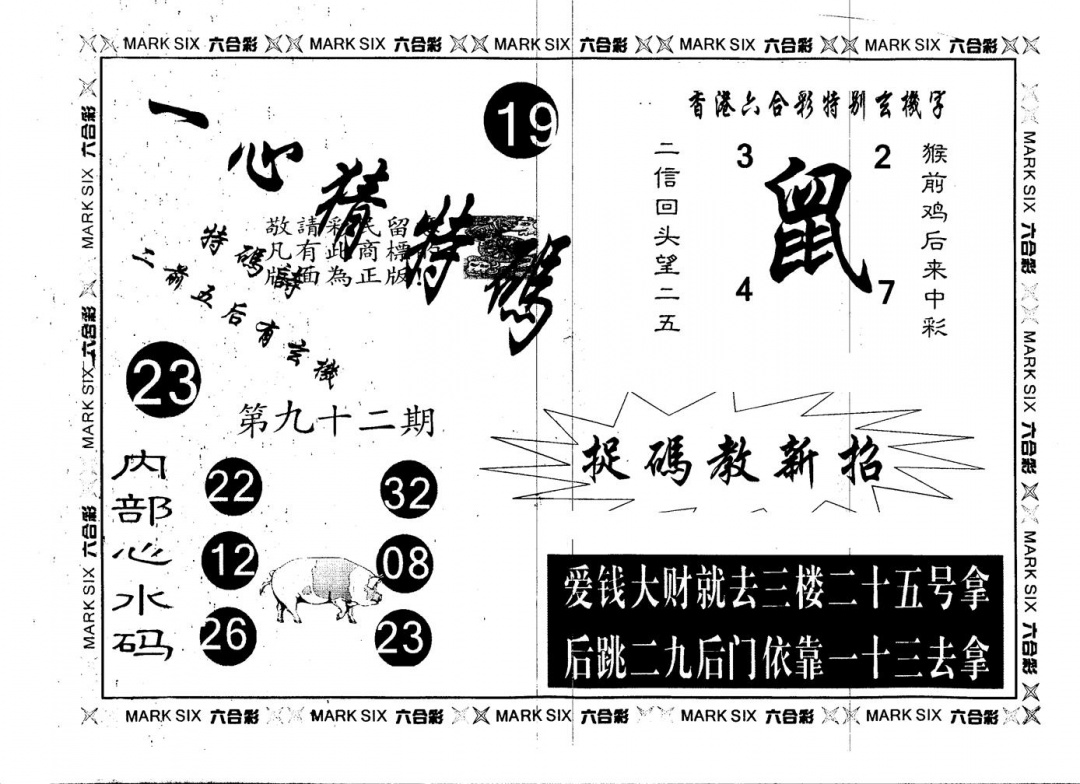 MARK SIX 六合彩 MARK SIX 六合彩 MARK SIX 六合彩 MARK SIX 六合彩 MARK SIX 六合彩
MARK SIX 六合彩
MARK SIX 六合彩
MARK SIX 六合彩
一心猜特碼
19
敬請彩民留
凡有此商標
版面為正版!
特碼詩
二前五后有玄機
23
第九十二期
内部心水码
22 32
12 08
26 23
香港六合彩特别玄機字
二信回头望二五
3 2
鼠
4 7
猴前鸡后来中彩
捉碼教新招
爱钱大财就去三楼二十五号拿
后跳二九后门依靠一十三去拿
MARK SIX 六合彩
MARK SIX 六合彩
MARK SIX 六合彩
MARK SIX 六合彩 MARK SIX 六合彩 MARK SIX 六合彩 MARK SIX 六合彩 MARK SIX 六合彩